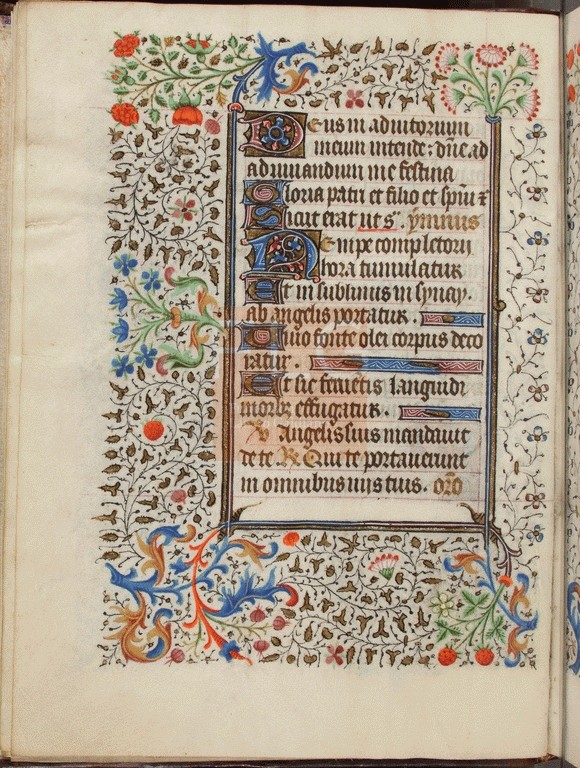 Deus in adiutorium
meum intende: dñe ad
adiuuandum me festina
Gloria patri et filio et spiũ
Sicut erat ut s̃. ymnus
Nempe completorii
hora tumulatur
Et in sublimis in synay.
ab angelis portatur.
Cuio fonte olei corpus deco
ratur.
Et sic fessietis languidi
morbꝫ effugatur.
℣ Angelis suis mandauit
de te ℟ Qui te portauerunt
in omnibus uiis tuis. orõ